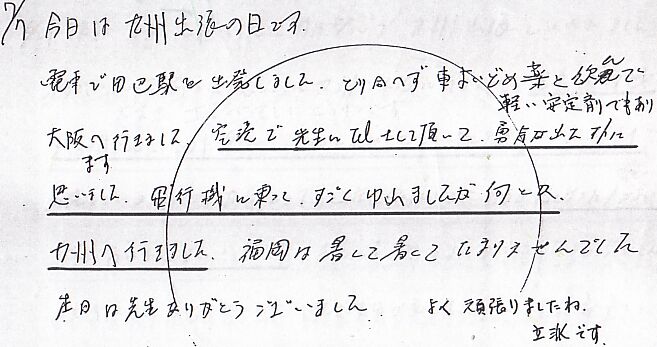 7/7 今日は九州出張の日です.
電車で田辺駅を出発しました. とりあへず車よいどめ薬を飲んで
軽い安定剤でもあり
大阪へ行きました. 空港で先生にtelさして頂いて. 勇気が出た様に
ます
思いました. 飛行機に乗って. すごく悩みましたが何とか.
九州へ行きました. 福岡は暑くて暑くてたまりませんでした
本日は先生ありがとうございました
よく頑張りましたね.
立派です.